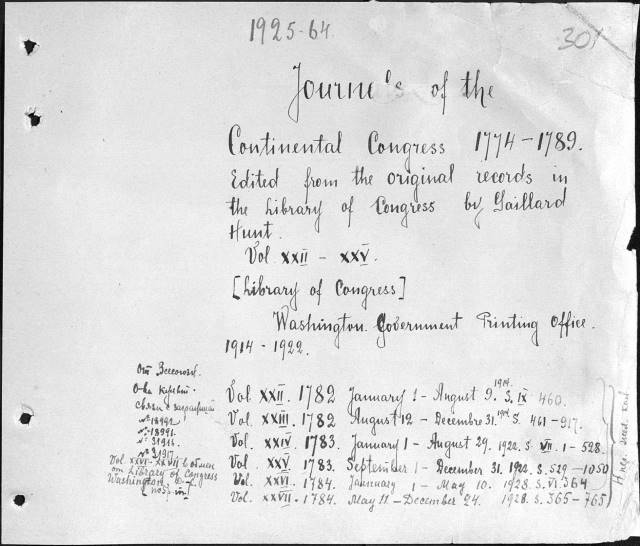 1925-64.
301
Journe's of the
Continental Congress 1774-1789.
Edited from the original records in
the Library of Congress by Gaillard
Hunt.
Vol XXII - XXV.
[Library of Congress]
Washington. Government Printing Office.
1914-1922.
От Всесоюзн.
О-ва культ.
связи с заграницей
№ 18992
№ 18991.
№ 31916.
№ 31917.
Vol XXVI-XXVII в обмен
от Library of Congress
Washington, D.C.
Vol. XXII. 1782 January 1 - August 9. 1914. S. IX 460.
Vol. XXIII. 1782 August 12 - Decembre 31. 1914 S. 461-917.
Vol. XXIV. 1783. January 1 - August 29. 1922. S. VII. 1-528.
Vol. XXV 1783. September 1 - December 31. 1922. S. 529-1050
Vol. XXVI. 1784. Jannuary 1 - May 10. 1928. S. VI. 364
Vol. XXVII. 1784. May 11 - December 24. 1928. S. 365-765